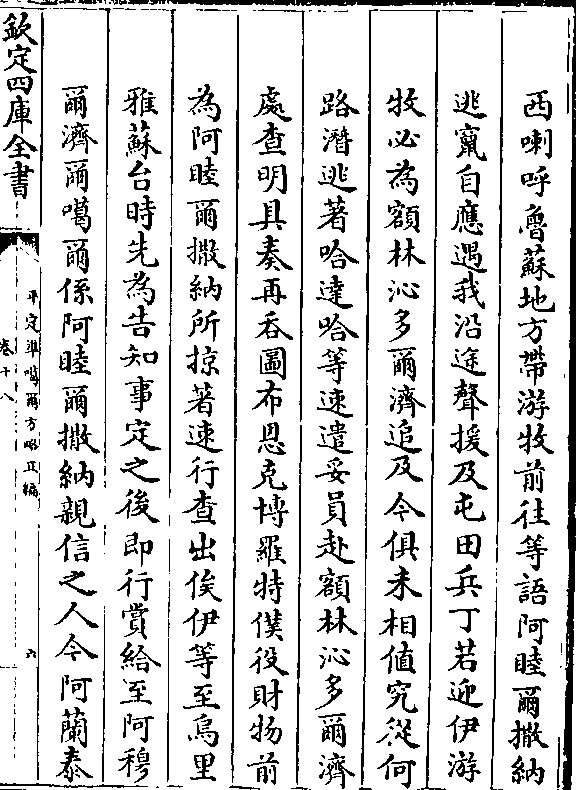 西喇呼魯蘇地方帶游牧前往等語阿睦爾撒納
逃竄自應遇我沿途聲援及屯田兵丁若迎伊游
牧必為額林沁多爾濟追及今俱未相值究從何
路潛逃著哈達哈等速遣妥員赴額林沁多爾濟
處查明具奏再吞圖布恩克博羅特僕役財物前
為阿睦爾撒納所掠著速行查出俟伊等至烏里
雅蘇台時先為告知事定之後即行賞給至阿穆
爾濟爾噶爾係阿睦爾撒納親信之人今阿蘭泰
欽定四庫全書
平定準噶爾方略正編
卷十八
六